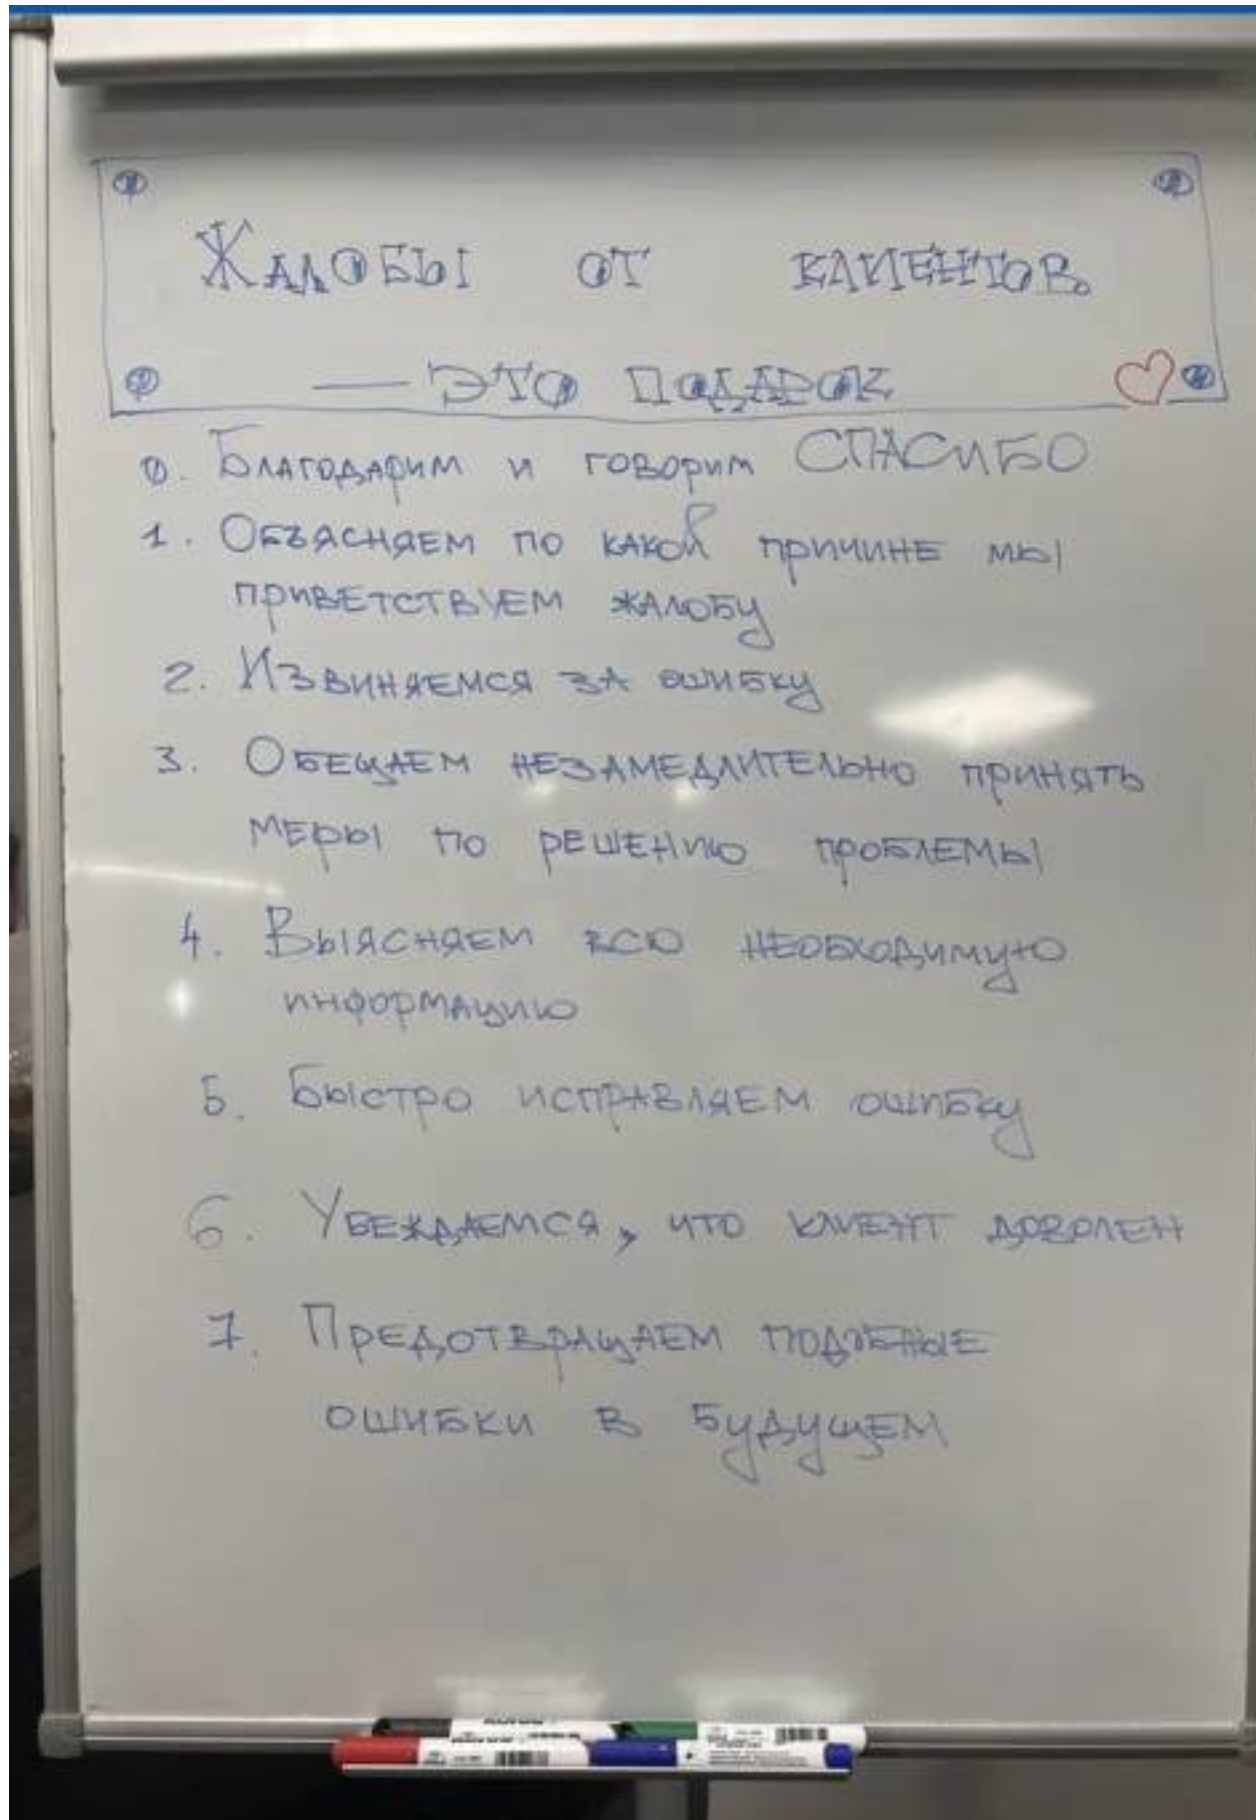 Жалобы от клиентов
— это подарок
0. Благодарим и говорим СПАСИБО
1. Объясняем по какой причине мы
приветствуем жалобу
2. Извиняемся за ошибку
3. Обещаем незамедлительно принять
меры по решению проблемы
4. Выясняем всю необходимую
информацию
5. Быстро исправляем ошибку
6. Убеждаемся, что клиент доволен
7. Предотвращаем подобные
ошибки в будущем